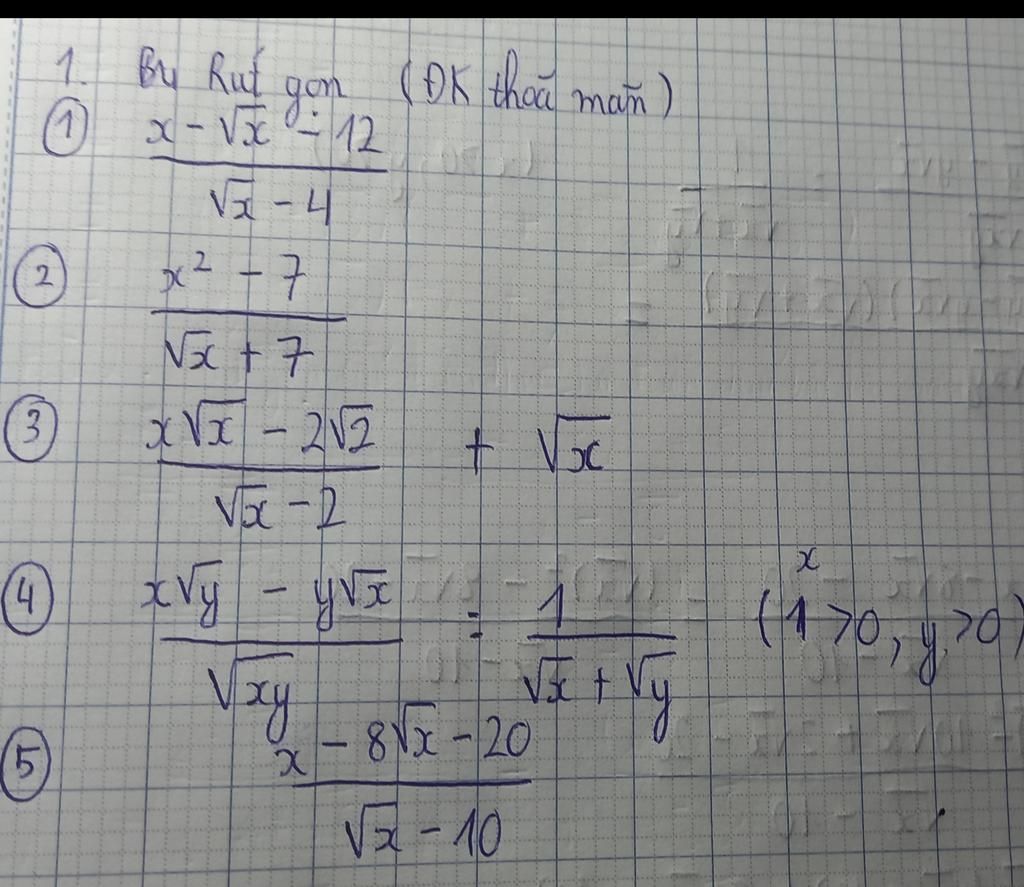 1. Rút gọn (ĐK thoả mãn)
① (x - √x - 12) / (√x - 4)
② (x² - 7) / (√x + 7)
③ (x√x - 2√2) / (√x - 2) + √x
④ (x√y - y√x) / √(xy) : 1 / (√x + √y) (x > 0, y > 0)
⑤ (x - 8√x - 20) / (√x - 10)